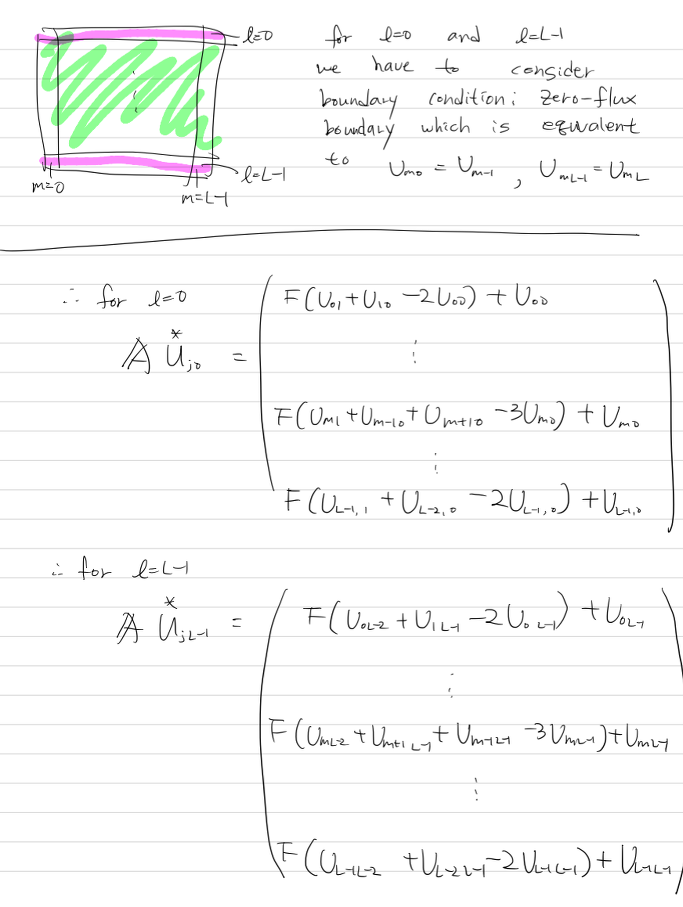 l=0
for l=0 and l=L-1
we have to consider
boundary condition; zero-flux
boundary which is equivalent
to U_{m0} = U_{m-1} , U_{mL-1} = U_{mL}
l=L-1
m=0
m=L-1
∴ for l=0
𝔸 U^*_{j0} =
F(U_{01}+U_{10} -2U_{00}) + U_{00}
⋮
F(U_{m1}+U_{m-10}+U_{m+10} -3U_{m0}) + U_{m0}
⋮
F(U_{L-1,1} +U_{L-2,0} -2U_{L-1,0}) +U_{L-1,0}
∴ for l=L-1
𝔸 U^*_{jL-1} =
F(U_{0L-2} +U_{1L-1} -2U_{0L-1}) +U_{0L-1}
⋮
F(U_{mL-2} +U_{m+1L-1}+ U_{m-1L-1} -3U_{mL-1})+U_{mL-1}
⋮
F(U_{L-1L-2} +U_{L-2L-1}-2U_{L-1L-1})+U_{L-1L-1}